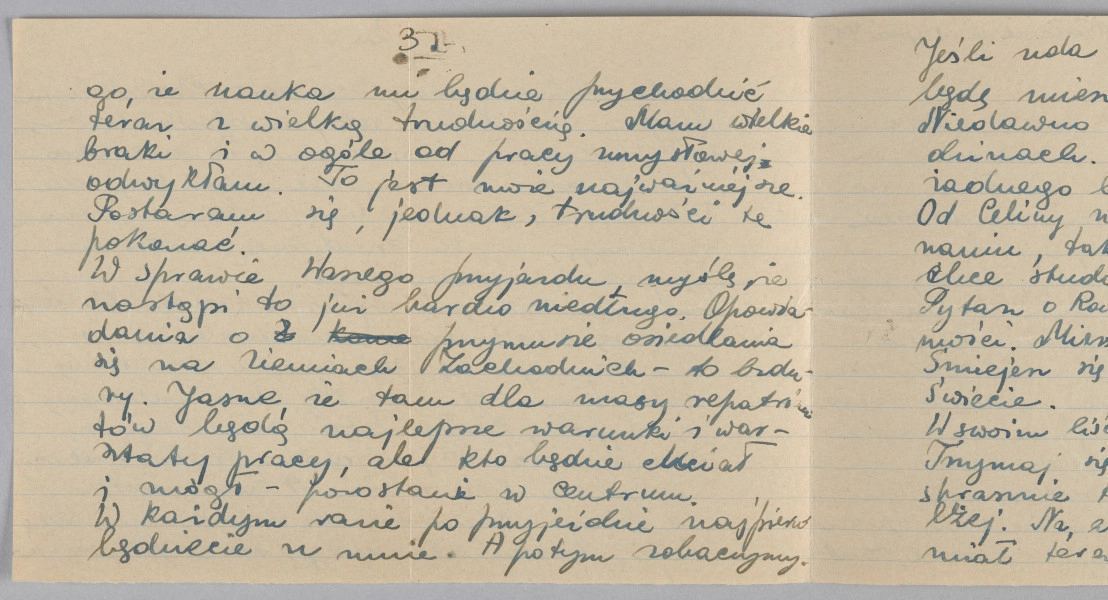 3
go, że nauka mi będzie przychodzić
teraz z wielką trudnością. Mam wielkie
braki i w ogóle od pracy umysłowej
odwykłam. To jest moje najważniejsze.
Postaram się, jednak, trudności te
pokonać.
W sprawie Waszego przyjazdu, myślę, że
nastąpi to już bardzo niedługo. Opowia-
dania o przymusie osiedlania
się na Ziemiach Zachodnich – to bzdu-
ry. Jasne, że tam dla masy repatrian
tów będą najlepsze warunki i war-
ztaty pracy, ale kto będzie chciał
i mógł – pozostanie w centrum.
W każdym razie po przyjeździe najpierw
będziecie u mnie. A potym zobaczymy.
Jeśli uda
będę miesz
Niedawno
dzinach.
żadnego
Od Celiny
naniu, tak
chce studi
Pytasz o
mości.
Śmiejesz się
świecie.
W swoim liś
Trzymaj się
strasznie
lżej. No, a
miał tera